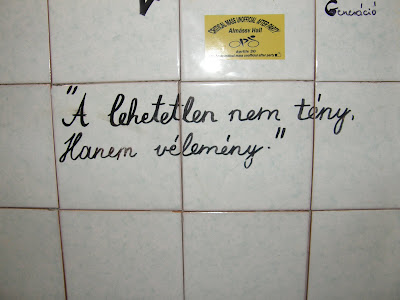 Generáció
CRITICAL MASS UNOFFICIAL AFTER PARTY
Almássy Hall
"A lehetetlen nem tény.
Hanem vélemény."